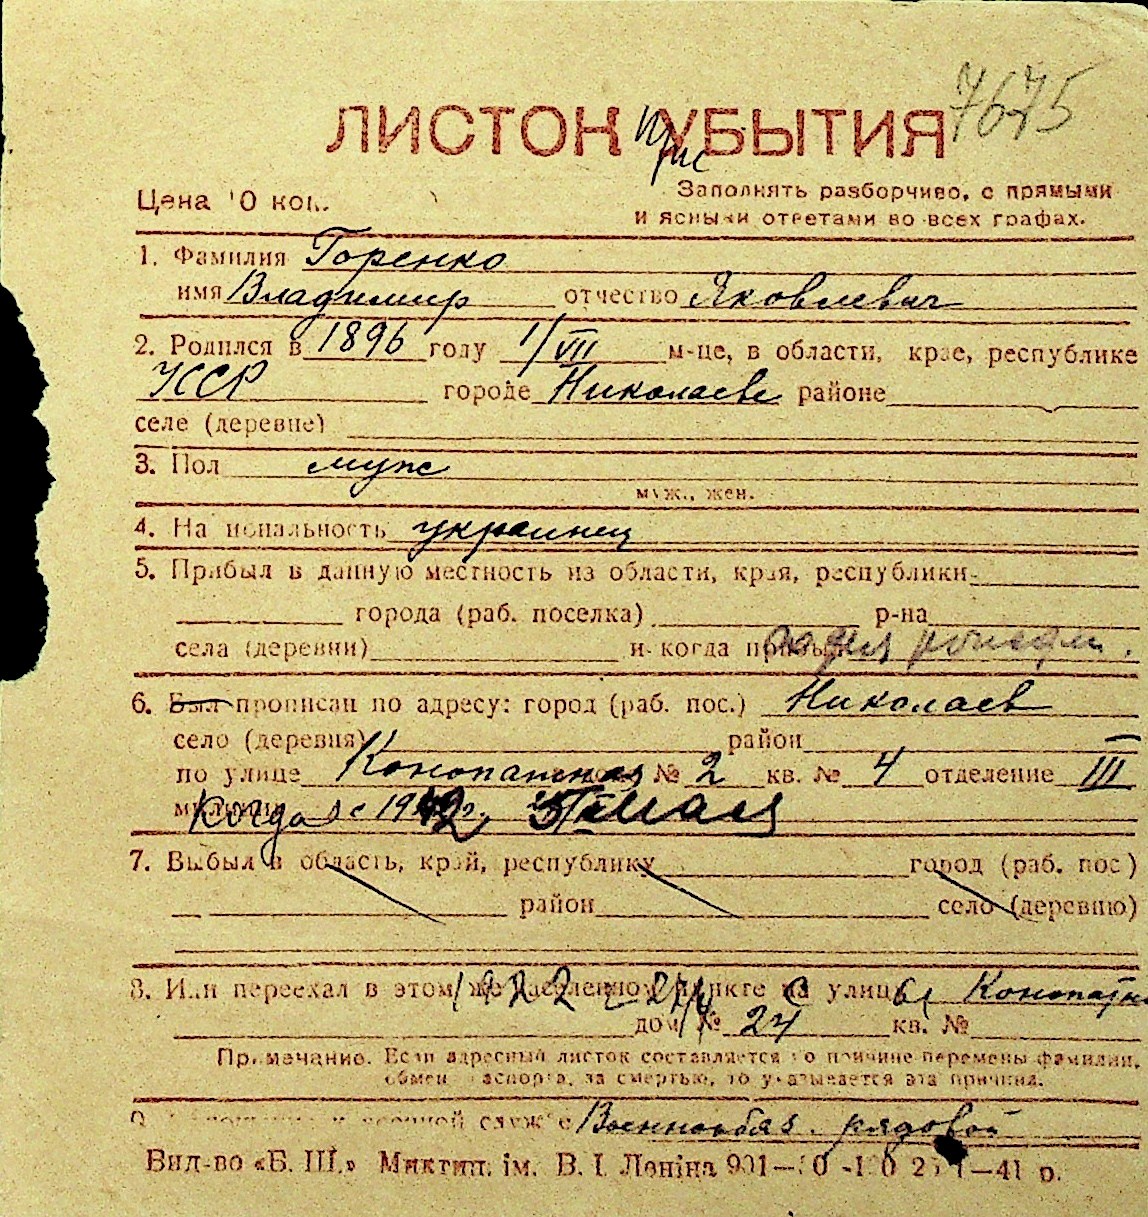 7675
ЛИСТОК УБЫТИЯ
При
Цена 10 коп.
Заполнять разборчиво, с прямыми
и ясными ответами во всех графах.
1. Фамилия Горенко
имя Владимир отчество Яковлевич
2. Родился в 1896 году 1/VII м-це, в области, крае, республике
УССР городе Николаеве районе
селе (деревне)
3. Пол муж
муж., жен.
4. Национальность украинец
5. Прибыл в данную местность из области, края, республики
города (раб. поселка) р-на
села (деревни) и когда прибыл
6. Был прописан по адресу: город (раб. пос.) Николаев
село (деревня) район
по улице № 2 кв. № 4 отделение III
милиции Когда с 1942 г. мая
7. Выбыл в область, край, республику город (раб. пос)
район село (деревню)
8. Или переехал в этом же населенном пункте на улицу
дом № 24 кв. №
Примечание. Если адресный листок составляется по причине перемены фамилии,
обмен паспорта, за смертью, то указывается эта причина.
9. военной службе Военнообяз. рядовой
Вид-во «Б. Ш.» Миктип. ім. В. І. Леніна 41 р.